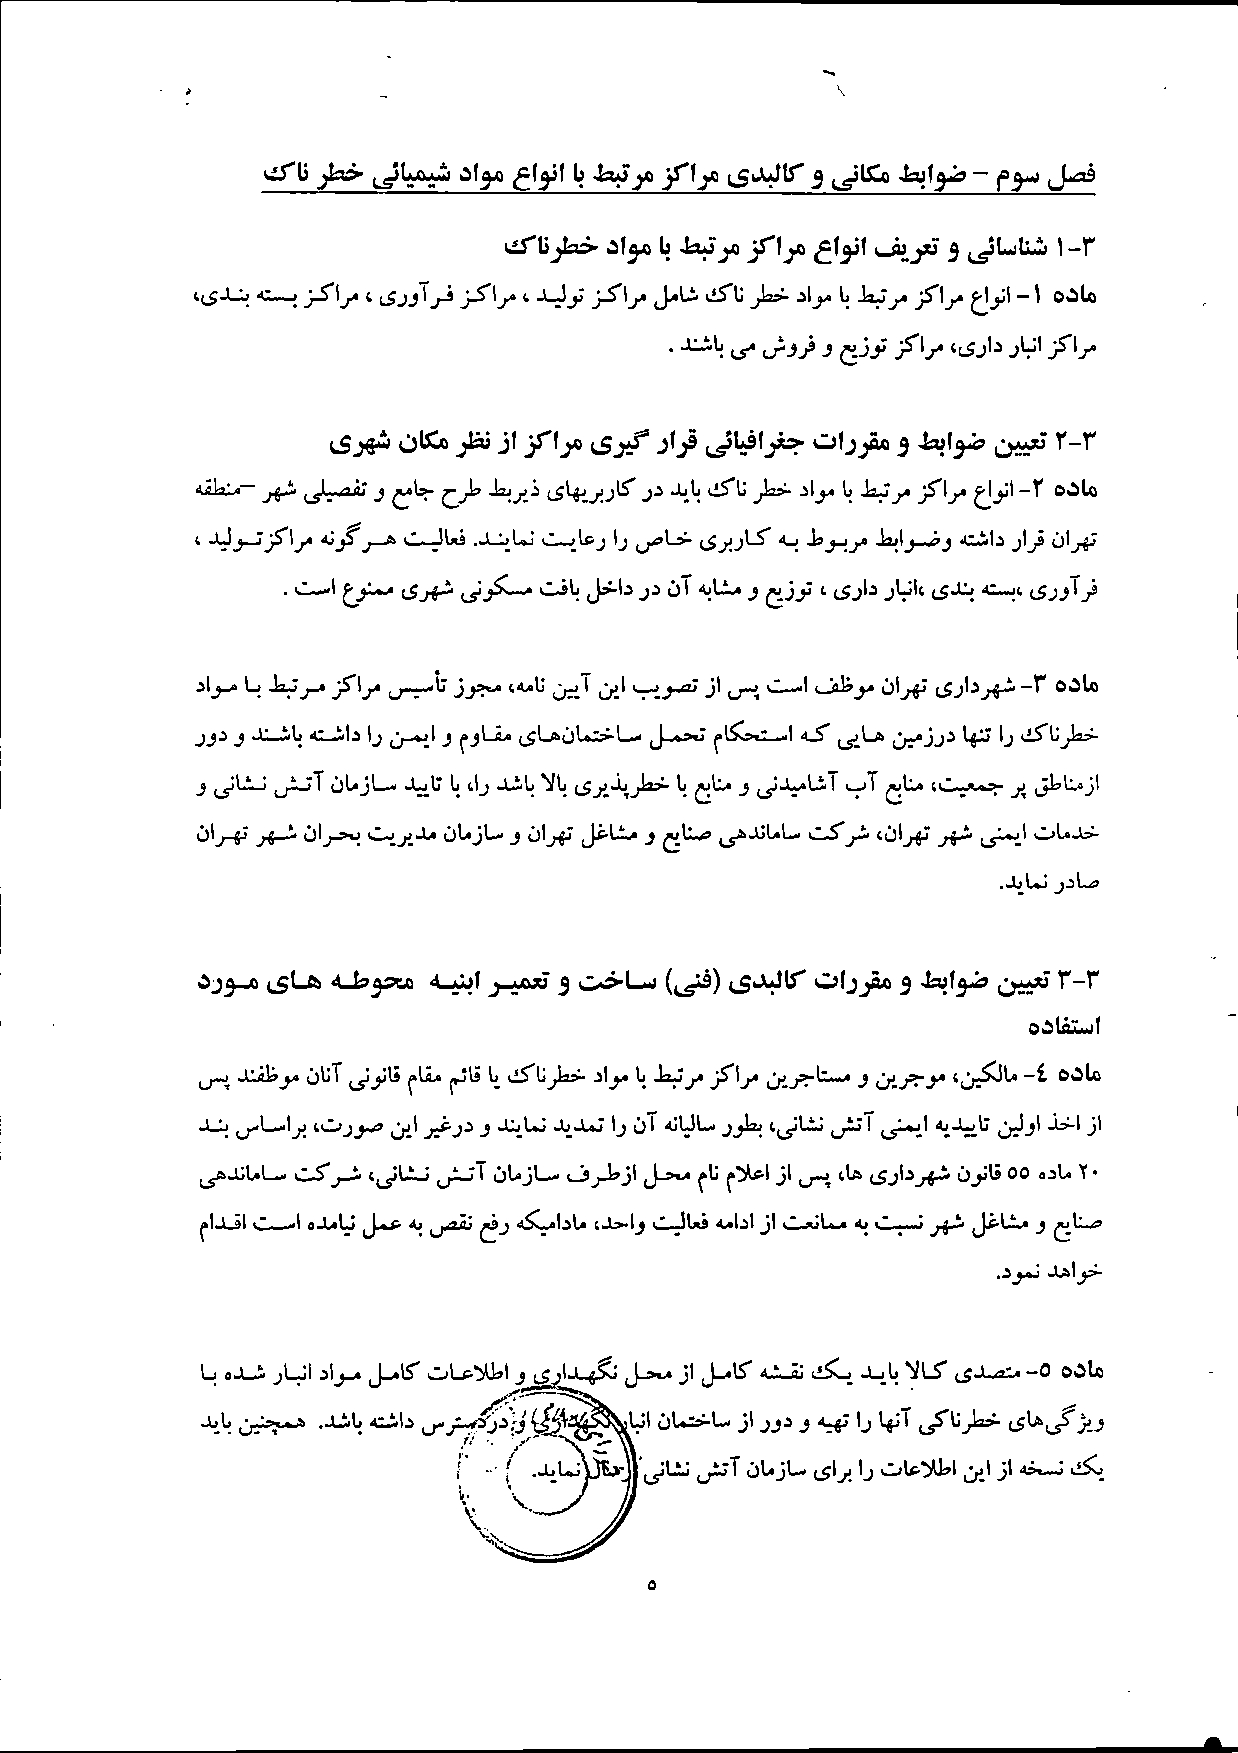 فصل سوم – ضوابط مکانی و کالبدی مراکز مرتبط با انواع مواد شیمیائی خطر ناک
۳-۱ شناسائی و تعریف انواع مراکز مرتبط با مواد خطرناک
ماده ۱- انواع مراکز مرتبط با مواد خطر ناک شامل مراکز تولید ، مراکز فرآوری ، مراکز بسته بندی،
مراکز انبار داری، مراکز توزیع و فروش می باشند .
۳-۲ تعیین ضوابط و مقررات جغرافیائی قرار گیری مراکز از نظر مکان شهری
ماده ۲- انواع مراکز مرتبط با مواد خطر ناک باید در کاربریهای ذیربط طرح جامع و تفصیلی شهر –منطقه
تهران قرار داشته وضوابط مربوط به کاربری خاص را رعایت نمایند. فعالیت هرگونه مراکزتولید ،
فرآوری ،بسته بندی ،انبار داری ، توزیع و مشابه آن در داخل بافت مسکونی شهری ممنوع است .
ماده ۳- شهرداری تهران موظف است پس از تصویب این آیین نامه، مجوز تأسیس مراکز مرتبط با مواد
خطرناک را تنها درزمین هایی که استحکام تحمل ساختمان‌های مقاوم و ایمن را داشته باشند و دور
ازمناطق پر جمعیت، منابع آب آشامیدنی و منابع با خطرپذیری بالا باشد را، با تایید سازمان آتش نشانی و
خدمات ایمنی شهر تهران، شرکت ساماندهی صنایع و مشاغل تهران و سازمان مدیریت بحران شهر تهران
صادر نماید.
۳-۳ تعیین ضوابط و مقررات کالبدی (فنی) ساخت و تعمیر ابنیه محوطه های مورد
استفاده
ماده ٤- مالکین، موجرین و مستاجرین مراکز مرتبط با مواد خطرناک یا قائم مقام قانونی آنان موظفند پس
از اخذ اولین تاییدیه ایمنی آتش نشانی، بطور سالیانه آن را تمدید نمایند و درغیر این صورت، براساس بند
۲۰ ماده ۵۵ قانون شهرداری ها، پس از اعلام نام محل ازطرف سازمان آتش نشانی، شرکت ساماندهی
صنایع و مشاغل شهر نسبت به ممانعت از ادامه فعالیت واحد، مادامیکه رفع نقص به عمل نیامده است اقدام
خواهد نمود.
ماده ۵- متصدی کالا باید یک نقشه کامل از محل نگهداری و اطلاعات کامل مواد انبار شده با
ویژگی‌های خطرناکی آنها را تهیه و دور از ساختمان انبار نگهداری و دردسترس داشته باشد. همچنین باید
یک نسخه از این اطلاعات را برای سازمان آتش نشانی ارسال نماید.
۵